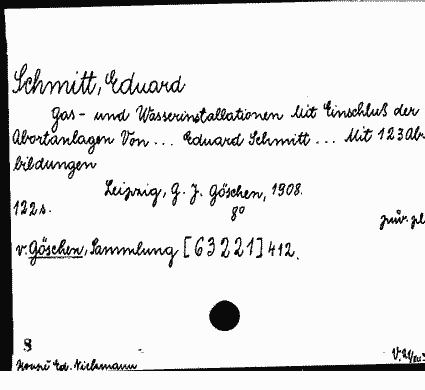 Schmitt, Eduard
Gas- und Wasserinstallationen mit Einschluß der
Abortanlagen Von ... Eduard Schmitt ... Mit 123 Ab-
bildungen
Leipzig, G. J. Göschen, 1908.
122 s. 8°
v. Göschen, Sammlung [63221] 412.
8